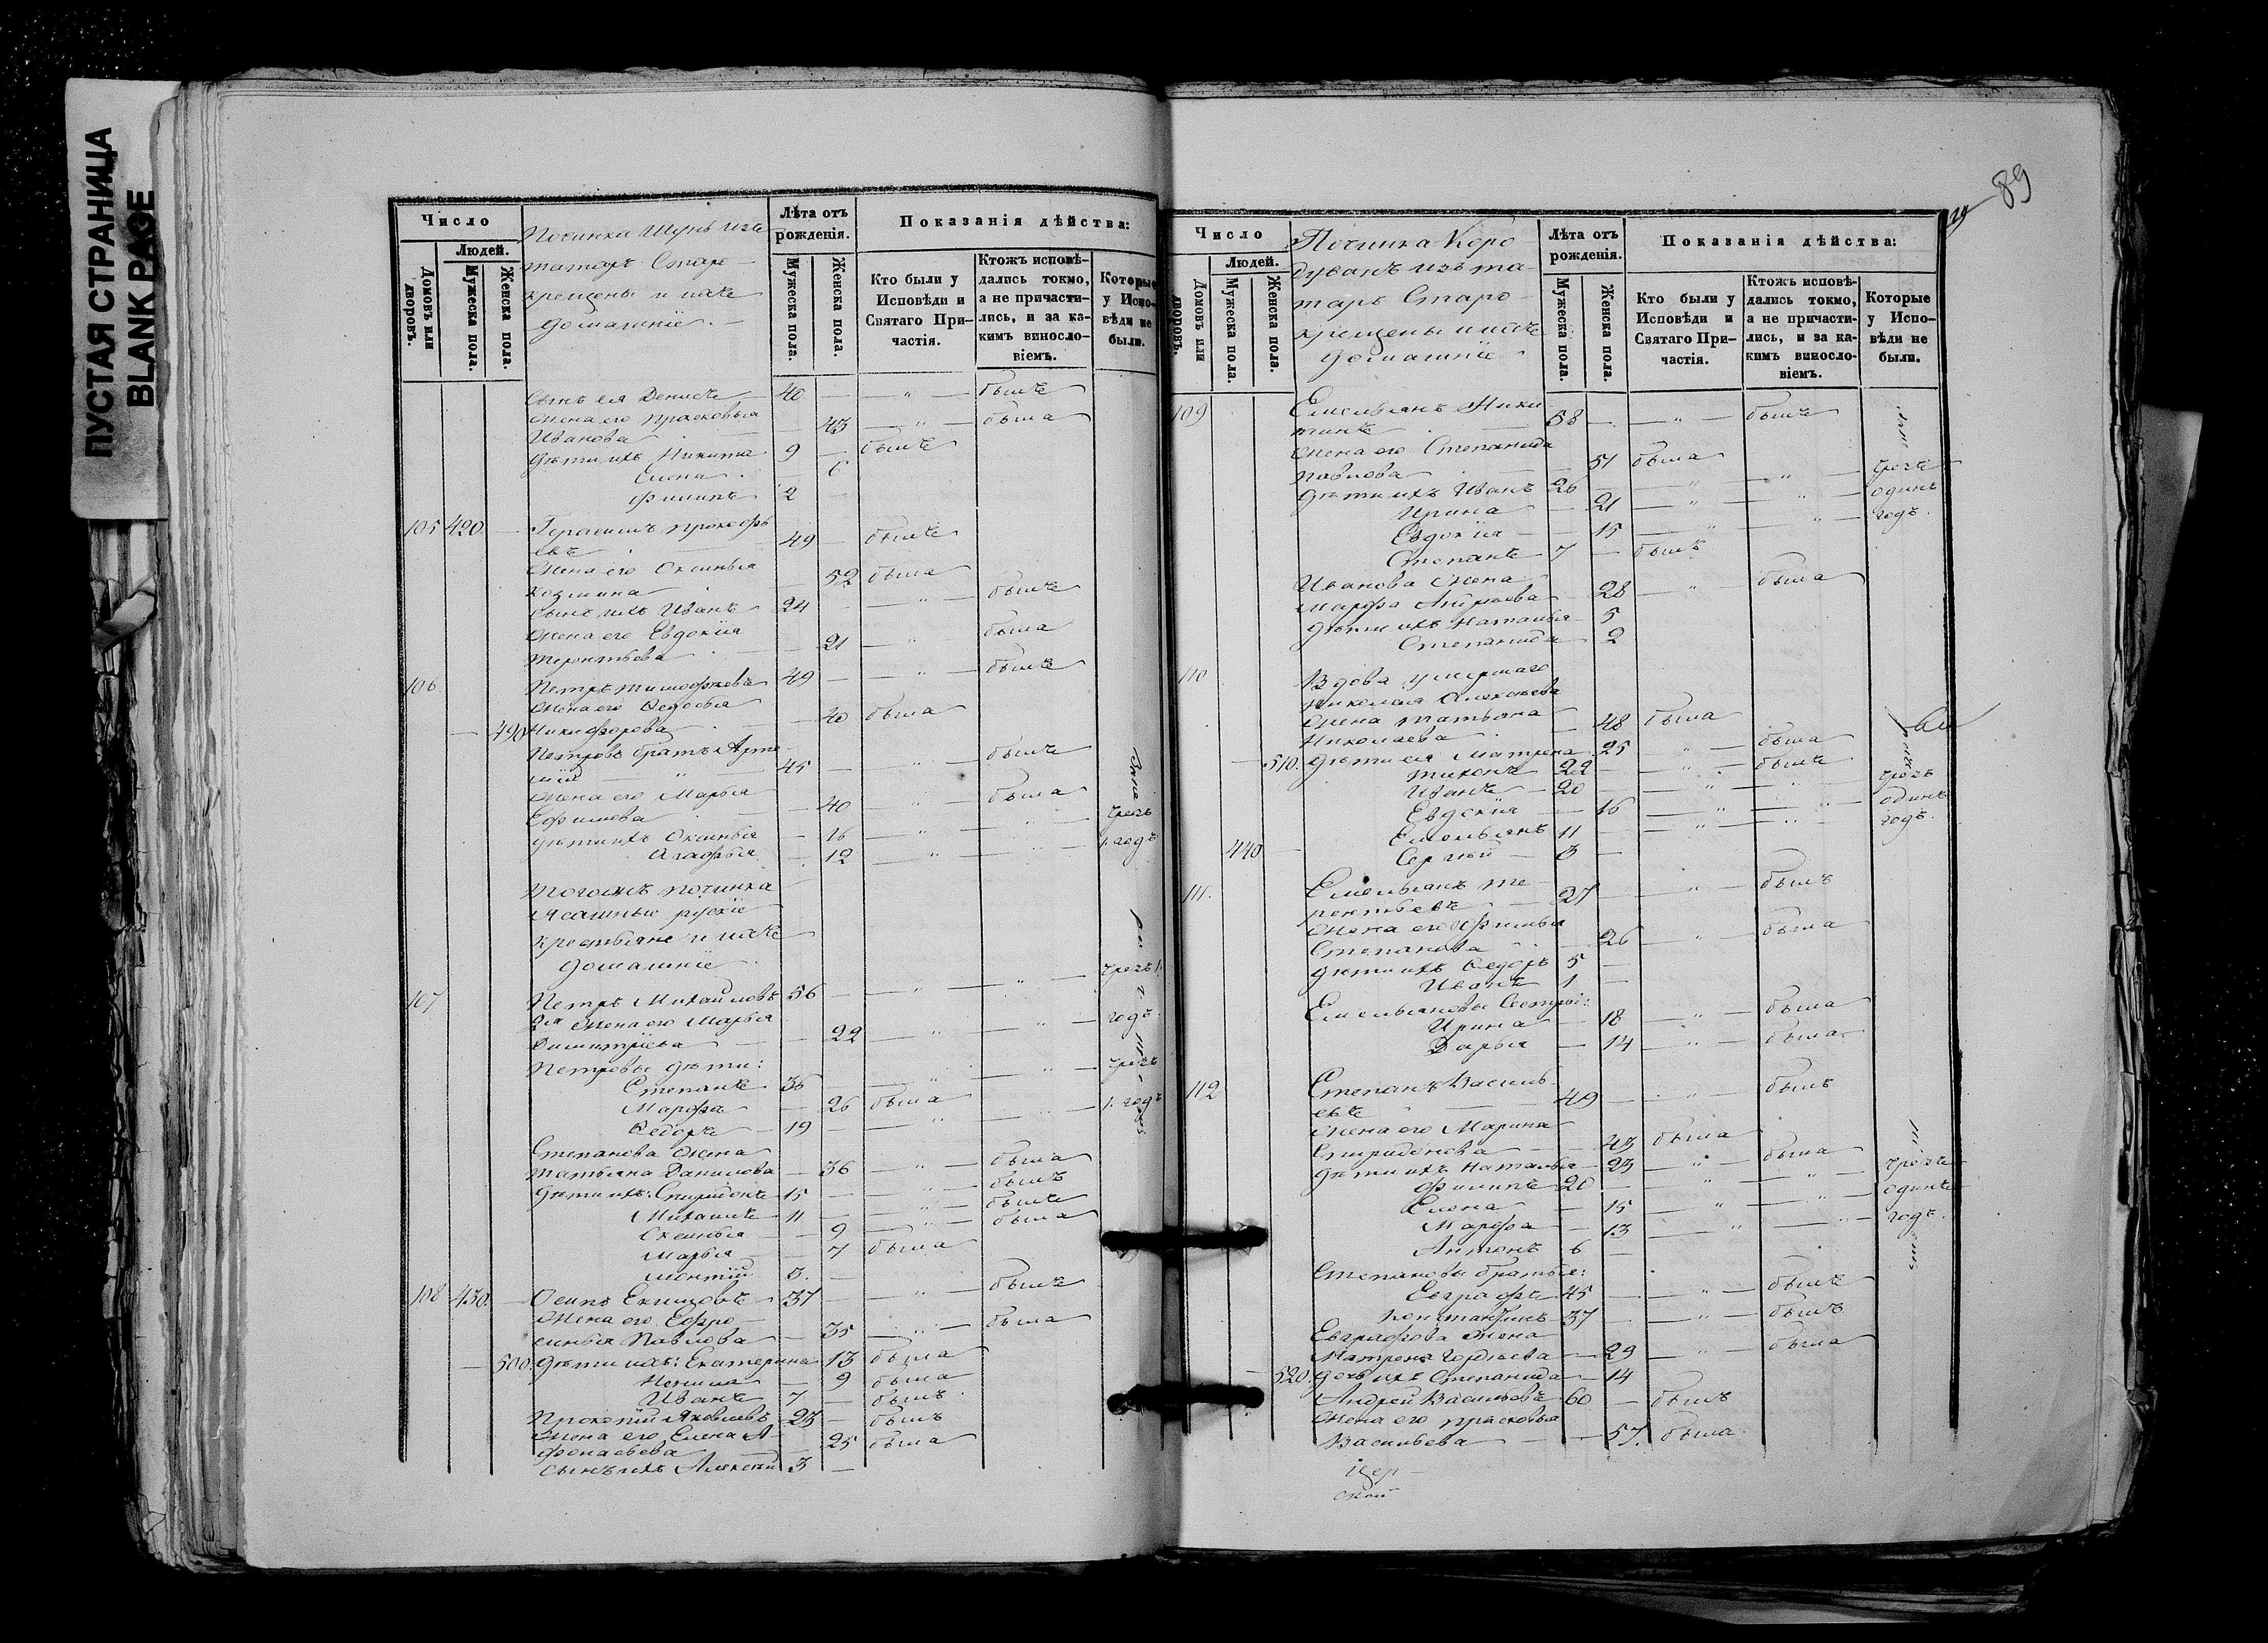 ПУСТАЯ СТРАНИЦА
BLANK PAGE
Число
Людей.
Домовъ или дворовъ.
Мужеска пола.
Женска пола.
Починка Шунь изъ
татаръ Старо-
крещены и ихъ
домашніе.
Лѣта отъ рожденія.
Мужеска пола.
Женска пола.
Показанія дѣйства:
Кто были у Исповѣди и Святаго Причастія.
Ктожъ исповѣдались токмо, а не причастились, и за какимъ винословіемъ.
Которые у Исповѣди не были.
Сынъ ея Денисъ 40 — " — былъ
Жена его Прасковья
Иванова — 43 — " — была
Дѣти ихъ Никита 9 — былъ
Елена — 6
Филипъ 2 —
105 420 — Герасимъ Прокофь
евъ 49 — былъ
Жена его Оксинья
Козмина — 52 была
Сынъ ихъ Иванъ 24 — " — былъ
Жена его Евдокія
Терентьева — 21 — " была
106 Петръ Тимофѣевъ 49 — " — былъ
Жена его Ѳедосья
— 490 Никифорова — 40 была
Петровъ братъ Арте-
мій — " — 45 — " — былъ
Жена его Марья
Ефимова — 40 " — была
Дѣти ихъ Оксинья — 16 — " — " чрезъ
Агафья — 12 — " — " 1. годъ
Тогожъ починка
Ясашные рускіе
крестьяне и ихъ
домашніе
107 Петръ Михайловъ 56 — " — " — чрезъ 1.
2я Жена его Марья
Димитріева — 22 — " — " — годъ
Петровы дѣти:
Степанъ 36 — " — " — чрезъ
Марфа — 26 была
Ѳедоръ — 19 — " — " — 1. годъ
Степанова Жена
Татьяна Данилова — 36 — " — была
Дѣти ихъ: Спиридонъ 15 — " — былъ
Михаилъ 11 — " — былъ
Оксинья — 9 — " — была
Марья — 7 была
3. —
108 430. — Осипъ 37 — " — былъ
Жена его Ефро-
синья Павлова — 35 — " — была
— 500. Дѣти ихъ: Екатерина 13 была
— 9 была
Иванъ 7 — былъ
Прокопій Яковлевъ 23 — былъ
Жена его Елена А-
фонасьева — 25 была
сынъ ихъ Алексѣй 3 —
89
Число
Людей.
Домовъ или дворовъ.
Мужеска пола.
Женска пола.
Починка Коро
дуванъ изъ та-
таръ Старо-
крещены и ихъ
домашніе
Лѣта отъ рожденія.
Мужеска пола.
Женска пола.
Показанія дѣйства:
Кто были у Исповѣди и Святаго Причастія.
Ктожъ исповѣдались токмо, а не причастились, и за какимъ винословіемъ.
Которые у Исповѣди не были.
109 Емельянъ Ники
тинъ 58 — " — былъ
Жена его Степанида
Павлова — 51 была
Дѣти ихъ Иванъ 26 — " — " — чрезъ
Ирина — 21 — " — " — одинъ
Евдокія — 15 — " — " — годъ.
Степанъ 7 — былъ
Иванова Жена
Марфа Андреева — 28 — " — была
Дѣти ихъ Наталья 5
Степанида 2
110 Вдова умершаго
Николая Алексѣева
Жена Татьяна
Николаева — 48 была
— 510. Дѣти ея Матрена 25 " — была
Тихонъ 22 — " — былъ
Иванъ 20 — " — " чрезъ
Евдокія — 16 — " — " одинъ
Емельянъ 11 — " — " годъ.
440 — Сергѣй 3 —
111. Емельянъ Те
рентьевъ 27 — " — былъ
Жена его Афимья
Степанова — 26 " — была
Дѣти ихъ Ѳедоръ 5 —
Иванъ 1 —
Емельяновы Сестры:
Ирина — 18 — " — была
Дарья — 14 — " — была
112 Степанъ Василь
евъ 49 — " — былъ
Жена его Марина
Спиридонова — 43 была
Дѣти ихъ Наталья — 23 — " — была
Филипъ 20 — " — " чрезъ
Елена — 15 — " — " одинъ
Марфа — 13 — " — " годъ.
Антонъ 6 —
Степановы братья:
Евграфъ 45 — " — былъ
Константинъ 37 — " — былъ
Евграфова Жена
Матрена Гордѣева — 29 — " — была
— 520. Дочь ихъ Степанида — 14
Андрей Васильевъ 60 — былъ
Жена его Прасковья
Васильева — 57. была